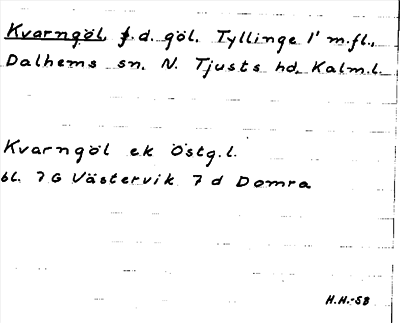 Kvarngöl, f.d. göl. Tyllinge 1¹ m.fl.,
Dalhems sn. N. Tjusts hd. Kalm.l.
Kvarngöl ek Östg.l.
bl. 7 G Västervik 7 d Domra
H.H.-58